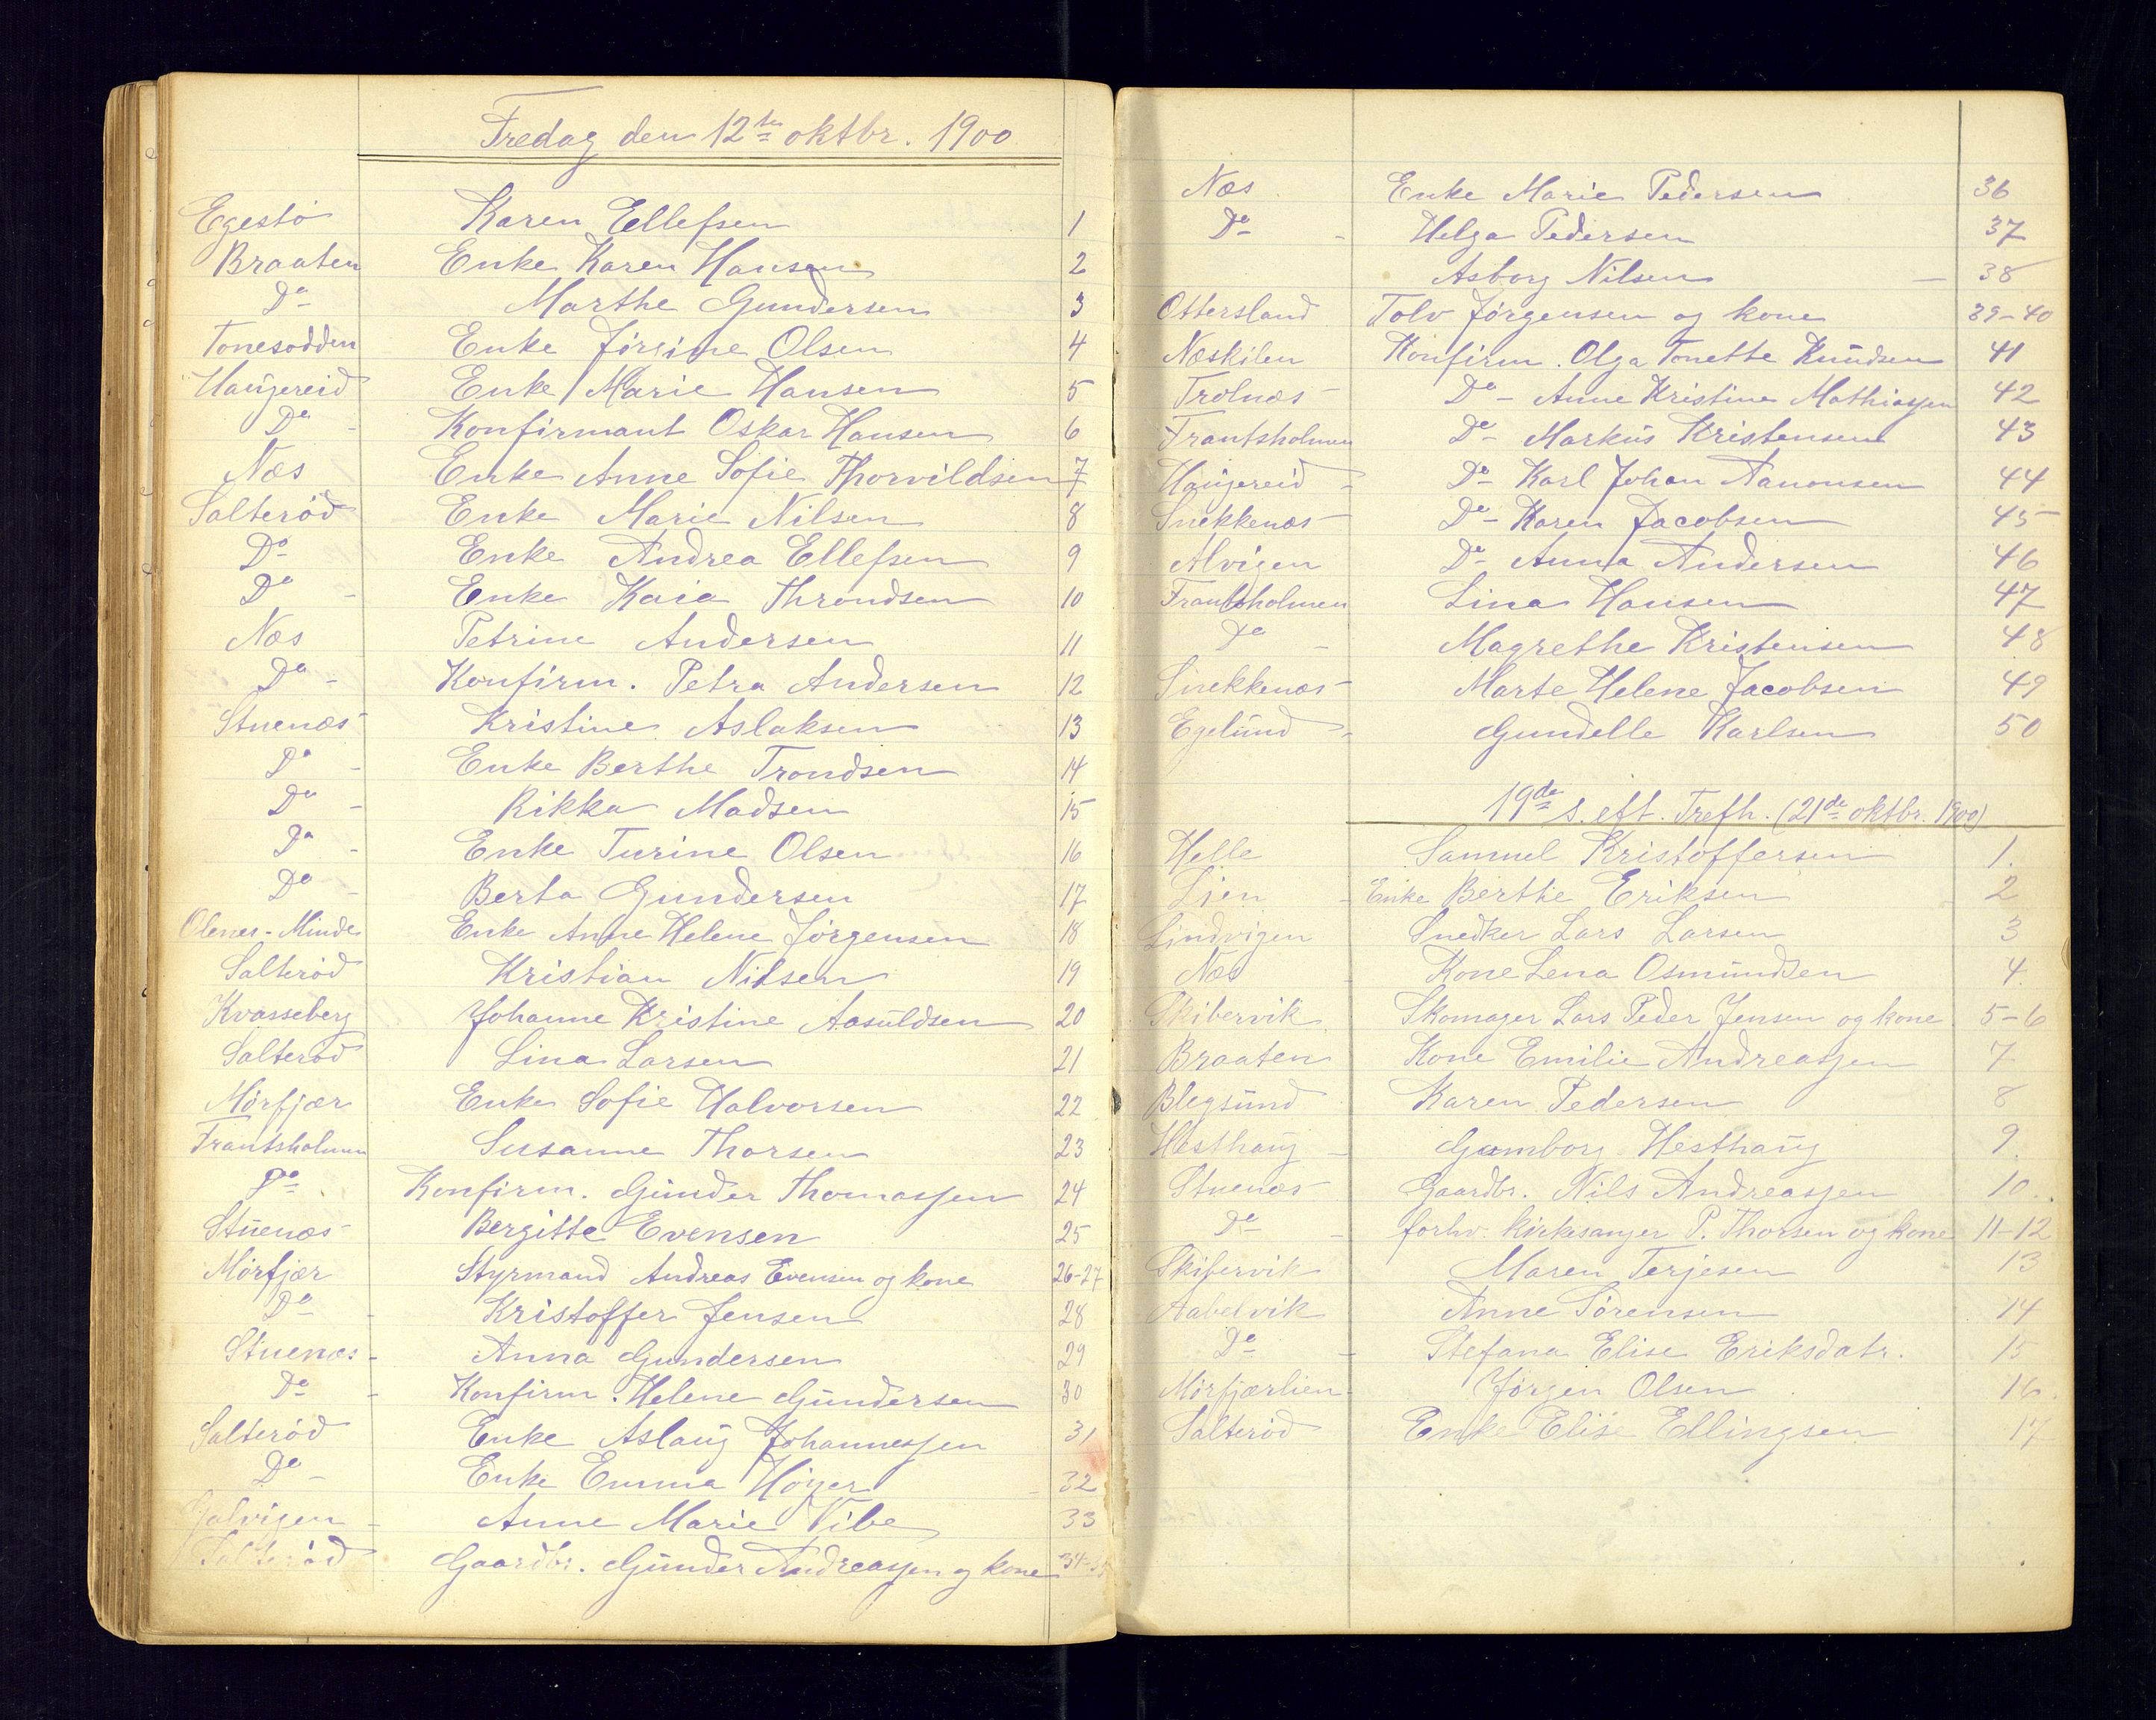 Fredag den 12te oktbr. 1900
Egestö Karen Ellefsen 1
Braaten Enke Karen Hansen 2
Do Marthe Gundersen 3
Tonesodden Enke Jörgine Olsen 4
Haugereid Enke Marie Hansen 5
Do - Konfirmant Oskar Hansen 6
Næs Enke Anne Sofie Thorvildsen 7
Salteröd Enke Marie Nilsen 8
Do Enke Andrea Ellefsen 9
Do - Enke Kaia Throndsen 10
Næs Petrine Andersen 11
Do - Konfirm. Petra Andersen 12
Stuenæs Kristine Aslaksen 13
Do - Enke Berthe Trondsen 14
Do - Rikka Madsen 15
Do - Enke Turine Olsen 16
Do - Berta Gundersen 17
Olenes-Minde Enke Anne Helene Jörgensen 18
Salteröd Kristian Nilsen 19
Kvasseberg Johanne Kristine Aasuldsen 20
Salteröd Lina Larsen 21
Mörfjær Enke Sofie Halvorsen 22
Frantsholmen Susanne Thorsen 23
Do Konfirm. Gunder Thomassen 24
Stuenæs Bergitte Evensen 25
Mörfjær Styrmand Andreas Evensen og kone 26-27
Do - Kristoffer Jensen 28
Stuenæs - Anna Gundersen 29
Do - Konfirm. Helene Gundersen 30
Salteröd Enke Aslaug Johannessen 31
Do - Enke Emma Höyer 32
Anne Marie Vibe 33
Salteröd Gaardbr. Gunder Andreassen og kone 34-35
Næs Enke Marie Pedersen 36
Do - Helga Pedersen 37
Asborg Nilsen 38
Ottersland Tolv Jörgensen og kone 39-40
Næskilen Konfirm. Olga Tonette Knudsen 41
Trolnæs Do - Anne Kristine Mathiassen 42
Frantsholmen Do - Markus Kristensen 43
Haugereid Do - Karl Johan Aanonsen 44
Snekkenæs Do - Karen Jacobsen 45
Alvigen Do - Anna Andersen 46
Frantsholmen Lina Hansen 47
Do - Magrethe Kristensen 48
Snekkenæs Marte Helene Jacobsen 49
Egelund Gundelle Karlsen 50
19de s. eft. Trefh. (21de oktbr. 1900)
Helle Samuel Kristoffersen 1.
Lien - Enke Berthe Eriksen 2
Lindvigen Snedker Lars Larsen 3
Næs Kone Lena Osmundsen 4.
Skibervik Skomager Lars Peder Jensen og kone 5-6
Braaten Kone Emilie Andreassen 7
Blegsund Karen Pedersen 8
Hesthaug - Gumborg Hesthaug 9.
Stuenæs Gaardbr. Nils Andreassen 10.
Do - forhv. kirkesanger P. Thorsen og kone 11-12
Skibervik Maren Terjesen 13
Aabelvik Anne Sörensen 14
Do - Stefana Elise Eriksdatr. 15
Mörfjærlien Jörgen Olsen 16.
Salteröd Enke Elise Ellingsen 17